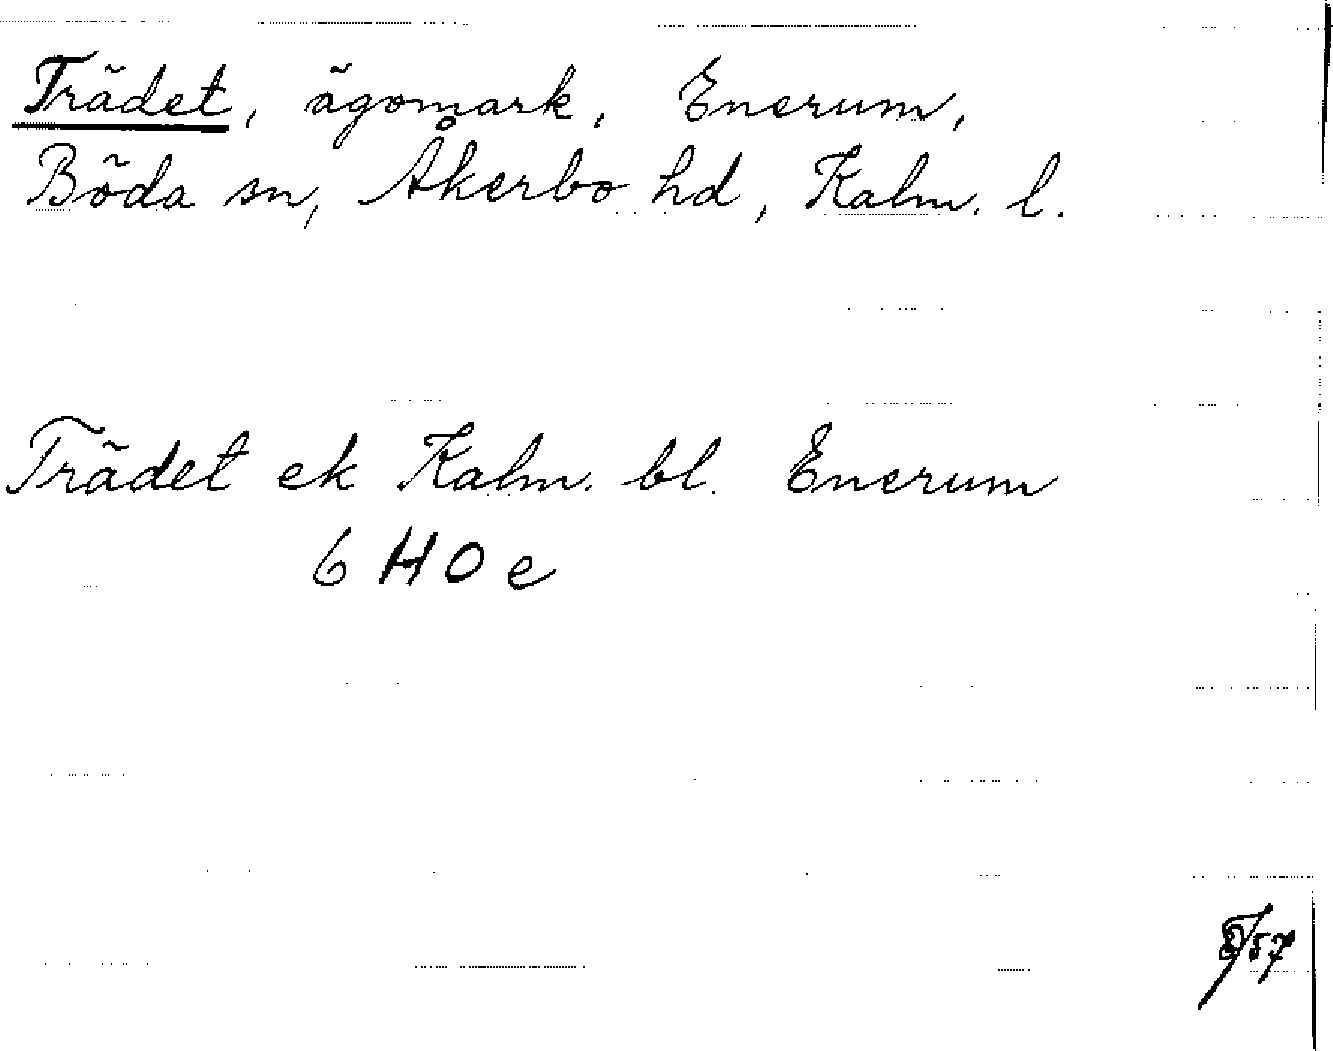 Trädet, ägomark, Enerum,
Böda sn, Åkerbo hd, Kalm. l.
Trädet ek Kalm. bl. Enerum
6 H0 e